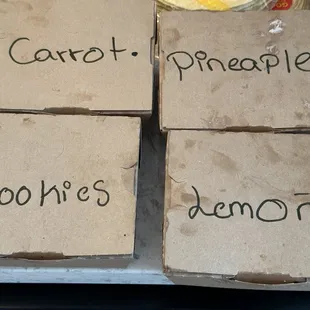 Carrot.
Pineaple
ookies
Lemon